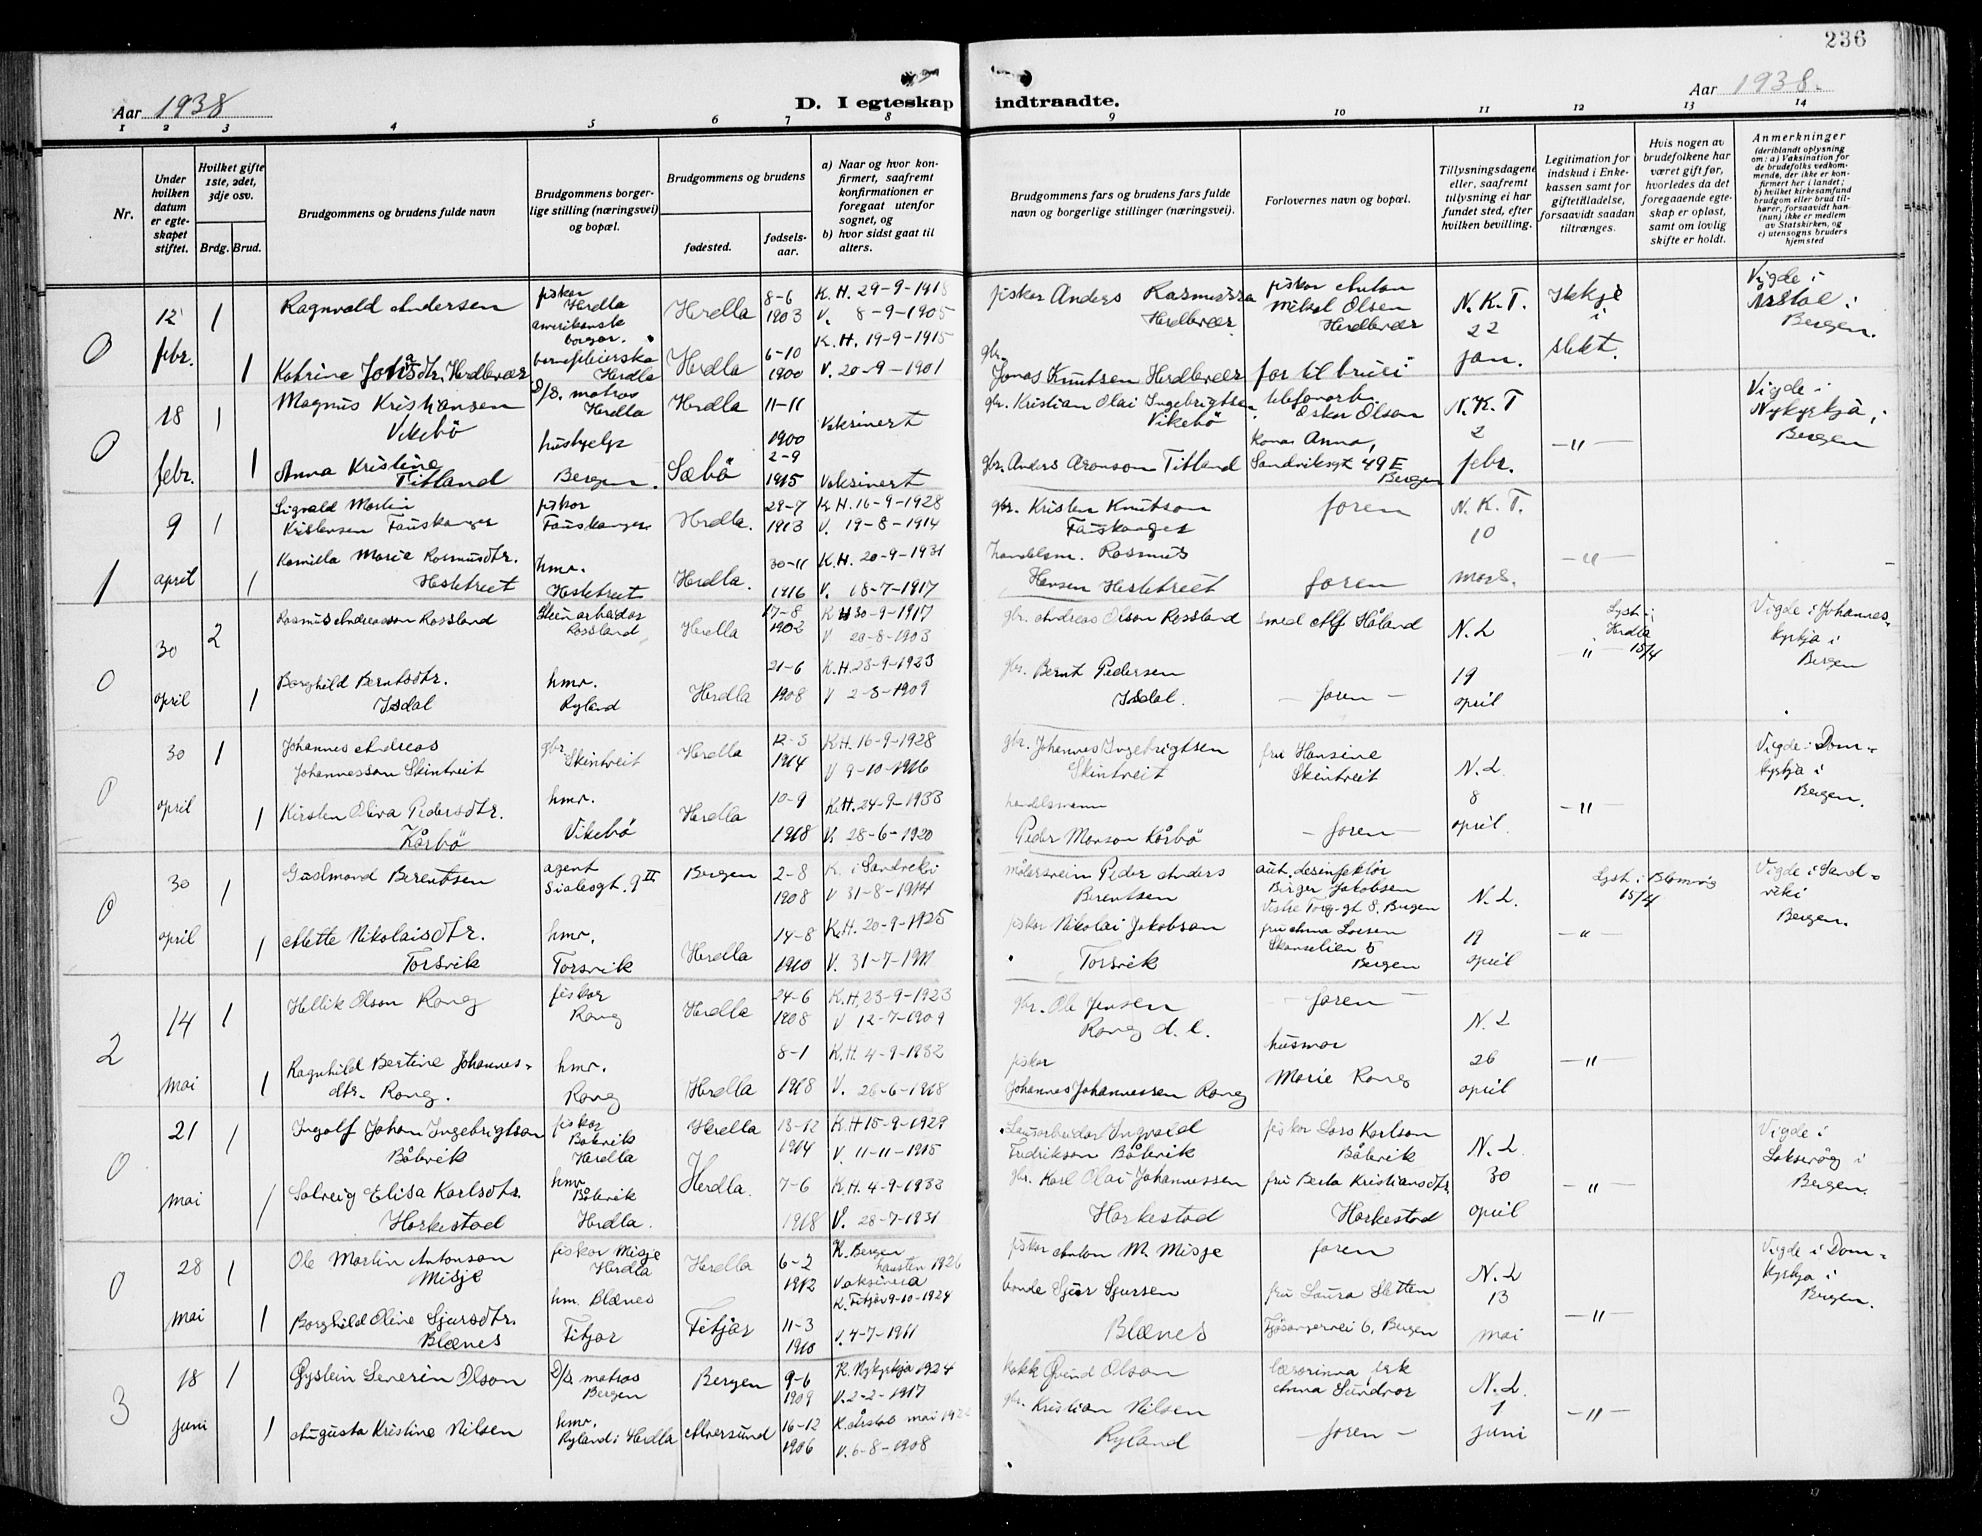 236
Aar 1938
D. I egteskap indtraadte.
Aar 1938.
1 2 3 4 5 6 7 8 9 10 11 12 13 14
Nr.
Under hvilken datum er egteskapet stiftet.
Hvilket gifte 1ste, 2det, 3dje osv.
Brdg. Brud.
Brudgommens og brudens fulde navn
Brudgommens borgerlige stilling (næringsvei) og bopæl.
Brudgommens og brudens
fødested.
fødselsaar.
a) Naar og hvor konfirmert, saafremt konfirmationen er foregaat utenfor sognet, og
b) hvor sidst gaat til alters.
Brudgommens fars og brudens fars fulde navn og borgerlige stillinger (næringsvei).
Forlovernes navn og bopæl.
Tillysningsdagene eller, saafremt tillysning ei har fundet sted, efter hvilken bevilling.
Legitimation for indskud i Enkekassen samt for giftetilladelse, forsaavidt saadan tiltrænges.
Hvis nogen av brudefolkene har været gift før, hvorledes da det foregaaende egteskap er opløst, samt om lovlig skifte er holdt.
Anmerkninger
(deriblandt oplysning om: a) Vaksination for de brudefolks vedkommende, der ikke er konfirmert her i landet; b) hvilket kirkesamfund brudgom eller brud tilhører, forsaavidt han (hun) ikke er medlem av Statskirken, og c) utensogns bruders hjemsted
0
12 febr.
1
Ragnvald Andersen
fiskar Herdla amerikanske borger.
Herdla
8-6 1903
K.H. 29-9-1918
V. 8-9-1905
fiskar Anders Rasmussen Herdlevær
fiskar Anton Mikal Olsen Herdlevær
N.K.T. 22 jan.
Ikkje i slekt.
Vigde i Årstad i Bergen.
1
Katrine Jonasdtr. Herdlevær
barnepleierske Herdla
Herdla
6-10 1900
K.H. 19-9-1915
V. 20-9-1901
gbr. Jonas Knutsen Herdlevær
far til brudi
0
18 febr.
1
Magnus Kristiansen Vikebö
D/s. matros Herdla
Herdla
11-11 1900
Vaksinert
gbr. Kristian Olai Ingebrigtsen Vikebö
telefonarb. Oskar Olson
N.K.T 2 febr.
-"-
Vigde i Nykyrkja, i Bergen
1
Anna Kristine Titland
hushjelp Bergen.
Sæbö
2-9 1915
Vaksinert
gbr. Anders Aronson Titland
kona Anna, Sandviksgt 49 E Bergen
1
9 april
1
Sigvald Martin Kristensen Fauskanger
fiskar Fauskanger
Herdla.
29-7 1913
K.H. 16-9-1928
V. 19-8-1914
gbr. Kristen Knutson Fauskanger
foren
N.K.T. 10 mars.
-"-
1
Kamilla Marie Rasmusdtr. Hestetreet
hmr. Hestetreet
Herdla.
30-11 1916
K.H. 20-9-1931
V. 18-7-1917
handelsm. Rasmus Hansen Hestetreet
foren
0
30 april
2
Rasmus Andreasson Rossland
Steinarbeidar Rossland
Herdla
17-8 1902
K.H 30-9-1917
V 20-8-1903
gbr. Andreas Olson Rossland
smed Alf Håland
N.L 19 april
Lyst i Herdla 15/4
-"-
Vigde i Johanneskyrkja i Bergen
1
Borghild Berntsdtr. Isdal
hmr. Ryland
Herdla
21-6 1908
K.H. 23-9-1923
V 2-8-1909
gbr. Bernt Pedersen Isdal.
- foren -
0
30 april
1
Johannes Andreas Johannesson Skintveit
gbr Skintveit
Herdla
12-3 1914
K.H. 16-9-1928
V 9-10-1916
gbr. Johannes Ingebrigtsen Skintveit
fru Hansine Skintveit
N.L. 8 april.
-"-
Vigde i Domkyrkja i Bergen.
1
Kirsten Oliva Pedersdtr. Kårbö
hmr. Vikebö
Herdla
10-9 1918
K.H. 24-9-1933
V. 28-6-1920
handelsmann Peder Monson Kårbö
- foren -
0
30 april
1
Gudmond Berentsen
agent
Bergen
2-8 1908
K. i Sandviki
V 31-8-1914
målarsvein Peder Anders Berentsen
aut. desinfektör Birger Jakobsen Bergen
N.L. 19 april
Lyst i Blomvåg 15/4
-"-
Vigde i Sandviki Bergen.
1
Mette Nikolaisdtr. Torsvik
hmr. Torsvik
Herdla
14-8 1910
K.H. 20-9-1925
V. 31-7-1911
fiskar Nikolai Jakobson Torsvik
fru Anna Larsen Skanselien 5 Bergen
2
14 mai
1
Hellik Olson Rong
fiskar Rong
Herdla
24-6 1908
K.H. 23-9-1923
V 12-7-1909
gbr. Ole Jensen Rong d. e.
- foren -
N.L 26 april
-"-
1
Ragnhild Bertine Johannesdtr. Rong.
hmr. Rong
Herdla
8-1 1918
K.H. 4-9-1932
V. 26-6-1918
fiskar Johannes Johannessen Rong
husmor Marie Rong
0
21 mai
1
Ingolf Johan Ingebrigtson Båtevik
fiskar Båtevik Herdla
Herdla
13-12 1914
K.H 15-9-1929
V. 11-11-1915
Lausarbeidar Ingvald Fredrikson Båtevik
fiskar Lars Karlson Båtevik
N.L. 30 april
-"-
Vigde i Laksevåg i Bergen.
1
Solveig Elisa Karlsdtr. Harkestad
hmr. Båtevik Herdla.
Herdla.
7-6 1918
K.H. 4-9-1932
V. 28-7-1931
gbr. Karl Olai Johannessen Harkestad
fru Berta Kristiansdtr. Harkestad
0
28 mai
1
Ole Martin Antonson Misje
fiskar Misje Herdla
Herdla
6-2 1912
K. Bergen hausten 1926
Vaksinera
fiskar Anton M. Misje
foren
N.L 13 mai
-"-
Vigde i Domkyrkja i Bergen.
1
Borghild Oline Sjursdtr. Blænes
hm. Blænes Fitjar
Fitjar
11-3 1910
K. Fitjar 9-10-1924
V. 4-7-1911
bonde Sjur Sjursen Blænes
fru Laura Sletten Fjösangervei 6, Bergen
3
18 juni
1
Øystein Severin Olson
D/s. matros Bergen
Bergen
9-6 1909
K. Nykyrkja 1924
V. 2-2-1917
kokk Øvind Olson
lærarinna frk Anna Sundvor
N.L. 1 juni
-"-
1
Augusta Kristine Nilsen
hmr. Ryland i Herdla
Alversund
16-12 1906
K. Årstad mai 192
V. 6-8-1908
gbr. Kristian Nilsen Ryland
- foren -